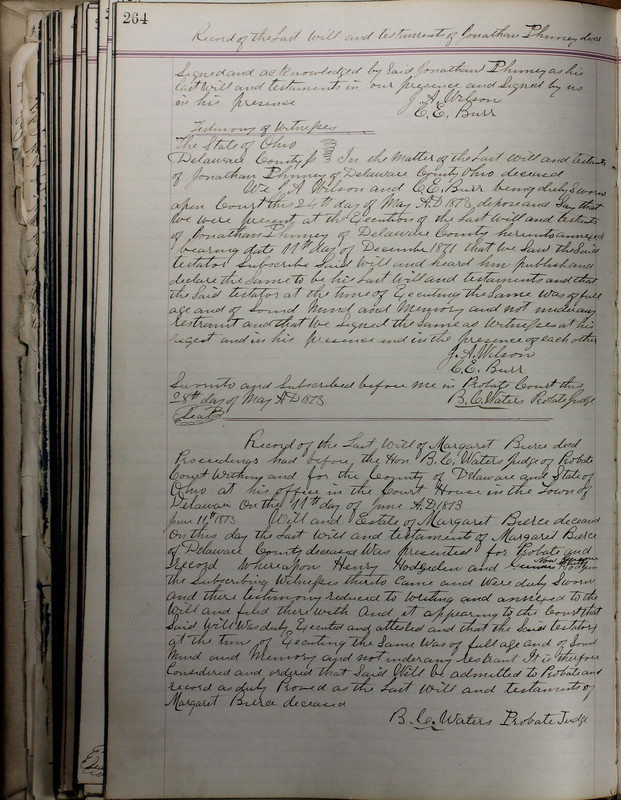 264
Record of the Last Will and testaments of Jonathan Phinney decd
Signed and acknowledged by Said Jonathan Phinney as his
last Will and testaments in our presence and Signed by us
in his presense J. A. Wilson
C. E. Burr
Testimony of Witnesses
The State of Ohio
Delaware County ss In the Matter of the Last Will and testmts
of Jonathan Phinney of Delaware County Ohio deceased
We J. A. Wilson and C. E. Burr being duly Sworn
open Court this 24th day of May A.D 1873, depose and Say that
We were present at the Execution of the Last Will and testmts
of Jonathan Phinney of Delaware County hereunto annexed
bearing date 11th day of December 1871 that We Saw the Said
testator Subscribe Said Will and heard him publish and
declare the Same to be his Last Will and testaments and that
the Said testator at the time of Executing the Same Was of full
age and of Sound Mind and Memory and not under any
restraint and that We Signed the Same as Witnesses at his
reqest and in his presence and in the presence of each other
J. A. Wilson
C. E. Burr
Sworn to and Subscribed before me in Probate Court this
28th day of May A D 1873 B. C. Waters Probate Judge
Seal
Record of the Last Will of Margaret Bierce decd
Proceedings had before the Hon B. C. Waters Judge of Probate
Court Within and for the County of Delaware and State of
Ohio at his office in the Court House in the Town of
Delaware On the 11th day of June A.D. 1873
June 11th 1873 Will and Estate of Margaret Bierce deceased
On this day the Last Will and testaments of Margaret Bierce
of Delaware County deceased Was presented for Probate and
record Whereupon Henry Hodgden and Hodgden
the Subscribing Witnesses thereto Came and Were duly Sworn
and there testimony reduced to Writing and annexed to the
Will and filed therewith And it appearing to the Court that
Said Will Was duly Executed and attested and that the Said testator
at the time of Executing the Same Was of full age and of Sound
Mind and Memory and not under any restraint It is therefore
Considered and ordered that Said Will be admitted to Probate and
record as duly Proved as the Last Will and testaments of
Margaret Bierce deceased
B. C. Waters Probate Judge